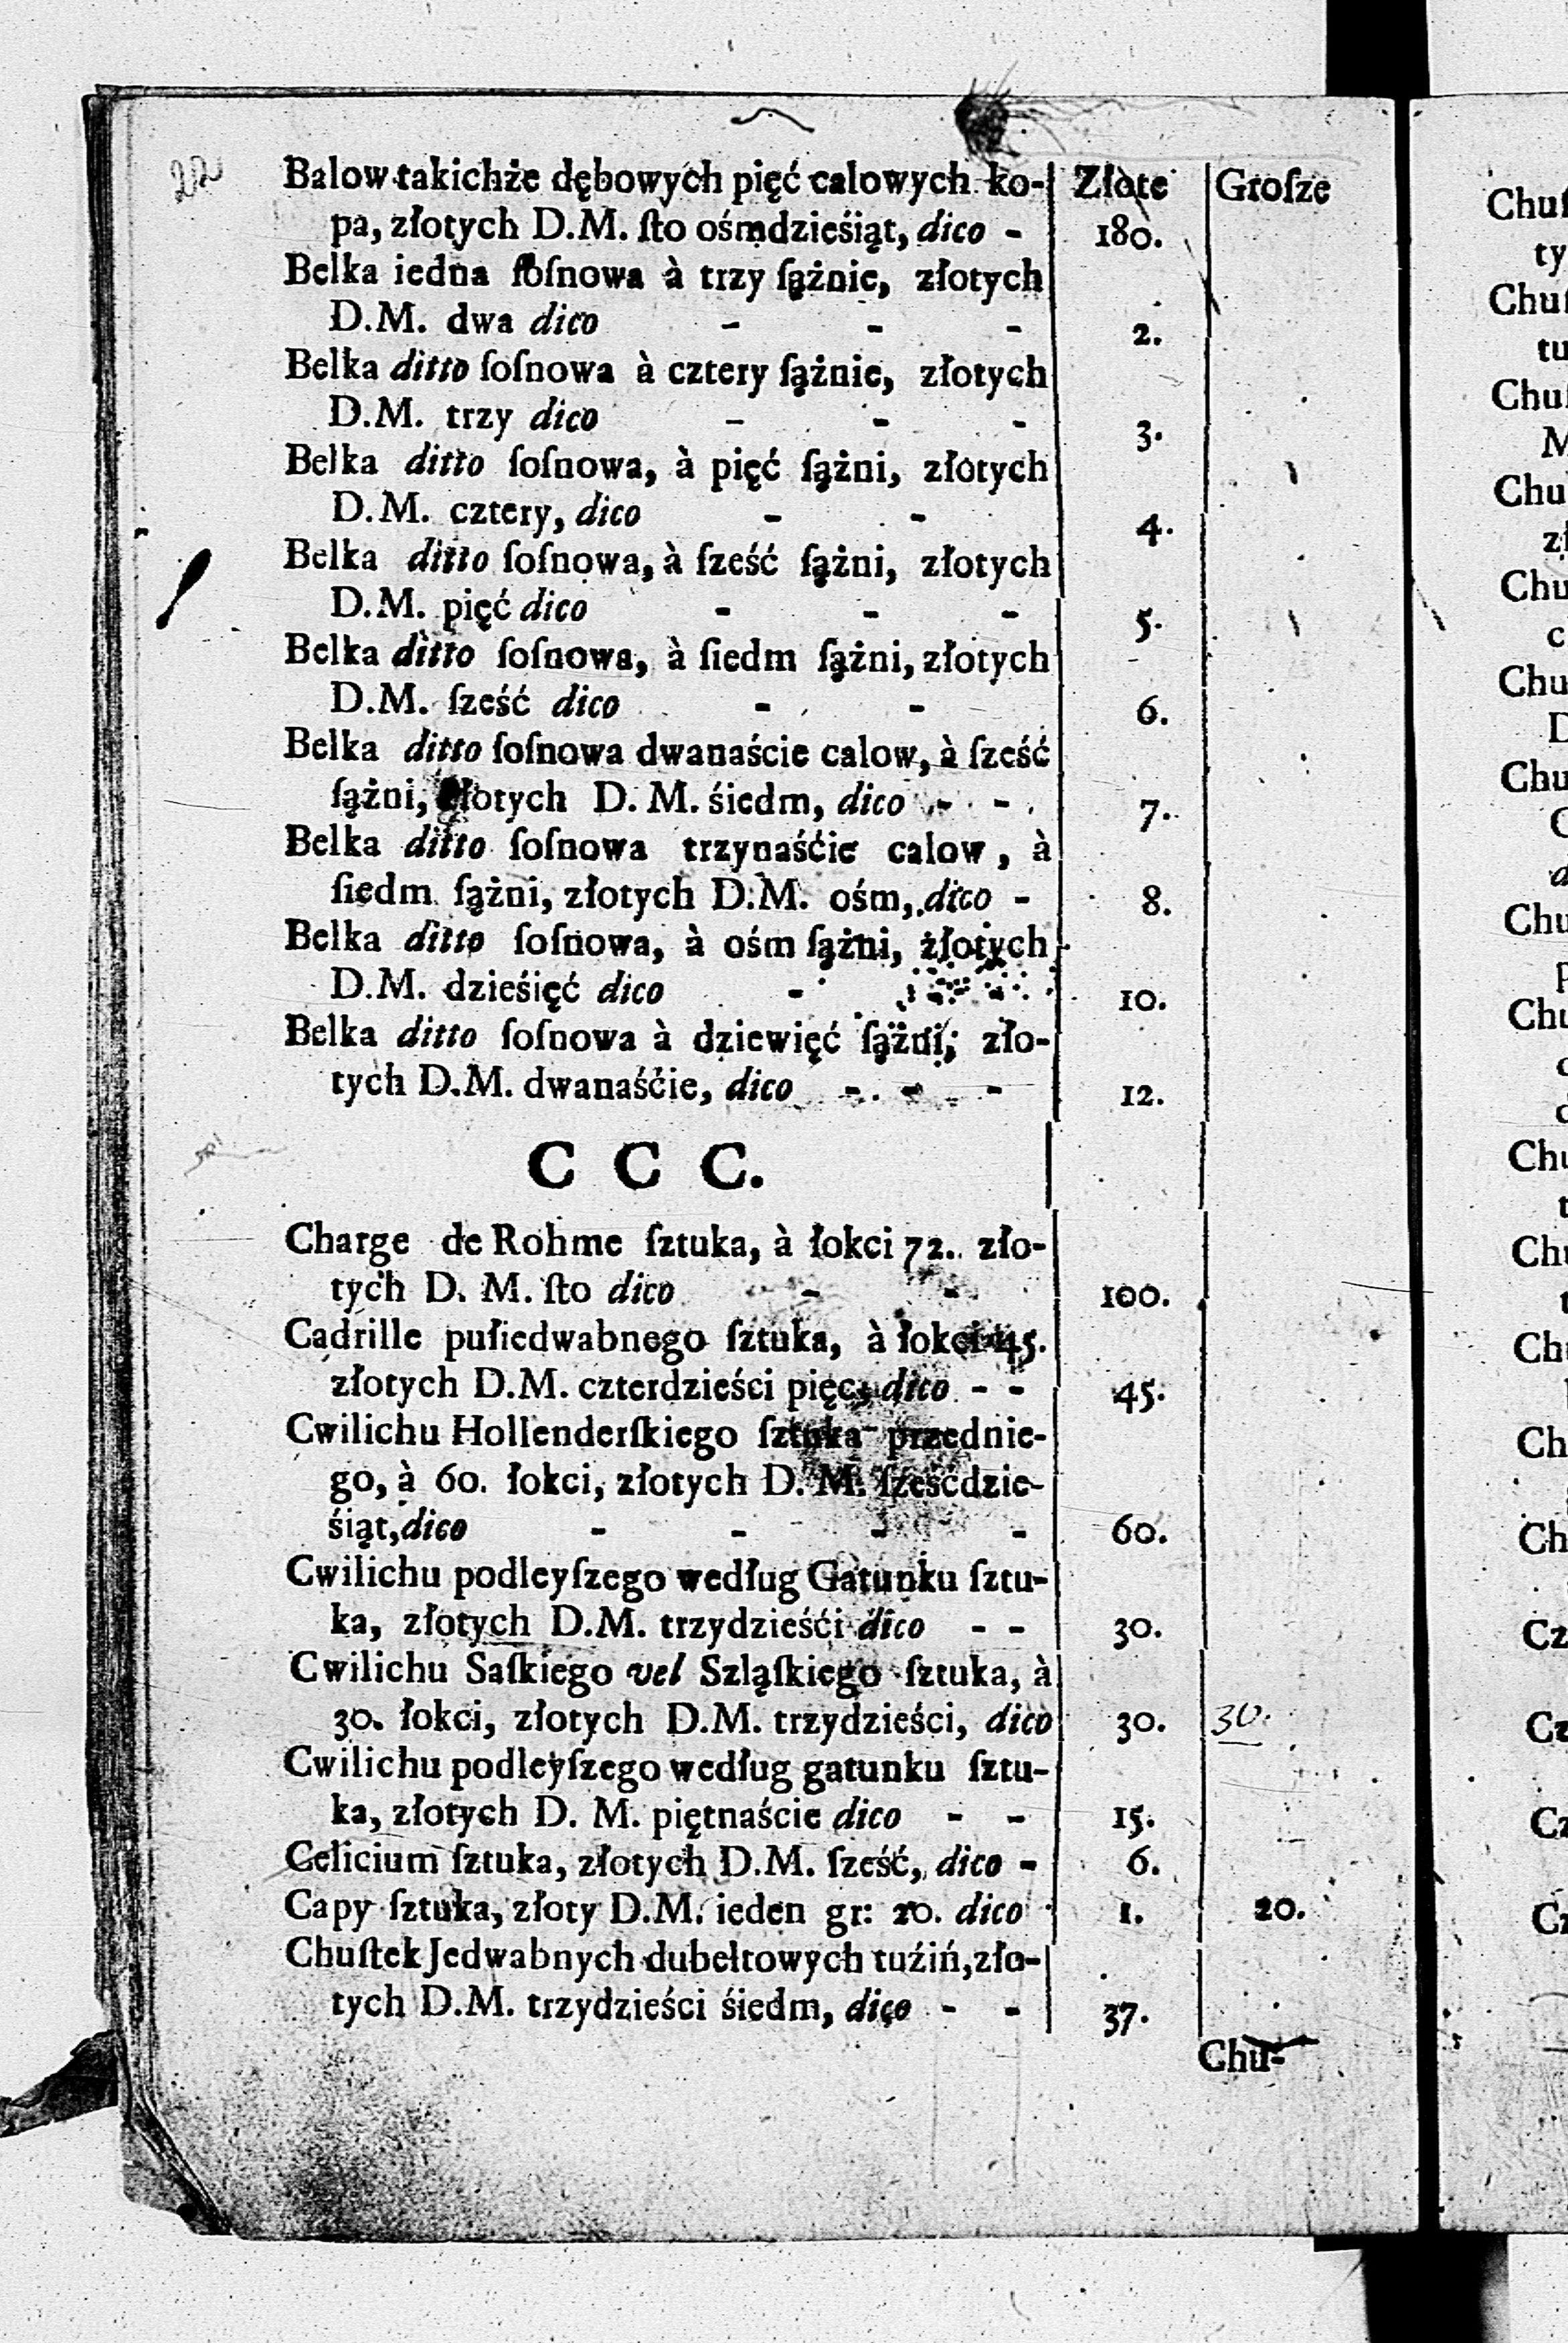 22
Balow takichże dębowych pięć calowych ko- Złote Groſze
pa, złotych D.M. ſto ośmdzieśiąt, dico - 180.
Belka iedna ſoſnowa à trzy ſążnie, złotych
D.M. dwa dico - - - 2.
Belka ditto ſoſnowa à cztery ſążnie, złotych
D.M. trzy dico - - - 3.
Belka ditto ſoſnowa, à pięć ſążni, złotych
D.M. cztery, dico - - 4.
Belka ditto ſoſnowa, à ſześć ſążni, złotych
D.M. pięć dico - - - 5.
Belka ditto ſoſnowa, à ſiedm ſążni, złotych
D.M. ſześć dico - - 6.
Belka ditto ſoſnowa dwanaście calow, à ſześć
ſążni, złotych D. M. śiedm, dico - - 7.
Belka ditto ſoſnowa trzynaśćie calow, à
ſiedm ſążni, złotych D.M. ośm, dico - 8.
Belka ditto ſoſnowa, à ośm ſążni, złotych
D.M. dzieśięć dico - 10.
Belka ditto ſoſnowa à dziewięć ſążni, zło-
tych D.M. dwanaśćie, dico - - - 12.
C C C.
Charge de Rohme ſztuka, à łokci 72. zło-
tych D. M. ſto dico - - 100.
Cadrille pułiedwabnego ſztuka, à łokci 45.
złotych D.M. czterdzieści pięć, dico - - 45.
Cwilichu Hollenderſkiego ſztuka przednie-
go, à 60. łokci, złotych D. M. ſześćdzie-
śiąt, dico - - - - 60.
Cwilichu podleyſzego według Gatunku ſztu-
ka, złotych D.M. trzydzieśći dico - - 30.
Cwilichu Saſkiego vel Szląſkiego ſztuka, à
30. łokci, złotych D.M. trzydzieści, dico 30. 30.
Cwilichu podleyſzego według gatunku ſztu-
ka, złotych D. M. piętnaście dico - - 15.
Celicium ſztuka, złotych D.M. ſześć, dico - 6.
Capy ſztuka, złoty D.M. ieden gr: 20. dico 1. 20.
Chuſtek Jedwabnych dubełtowych tuźiń, zło-
tych D.M. trzydzieści śiedm, dico - - 37.
Chu-